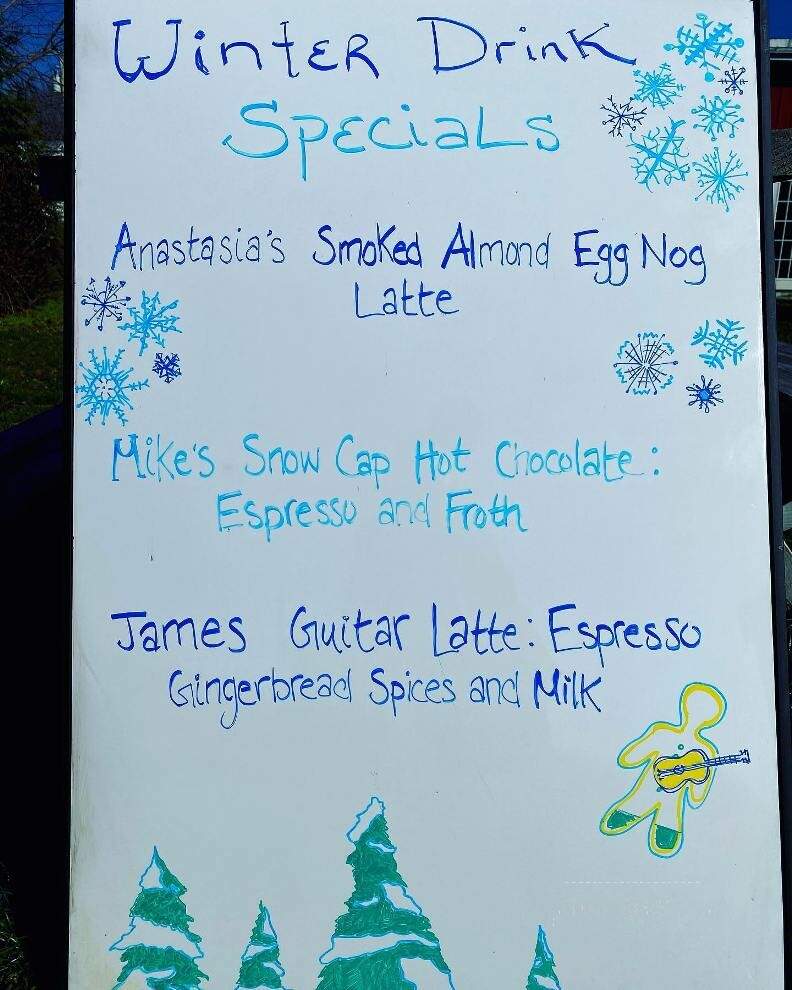 Winter Drink
Specials
Anastasia's Smoked Almond Egg Nog
Latte
Mike's Snow Cap Hot Chocolate:
Espresso and Froth
James Guitar Latte: Espresso
Gingerbread Spices and Milk